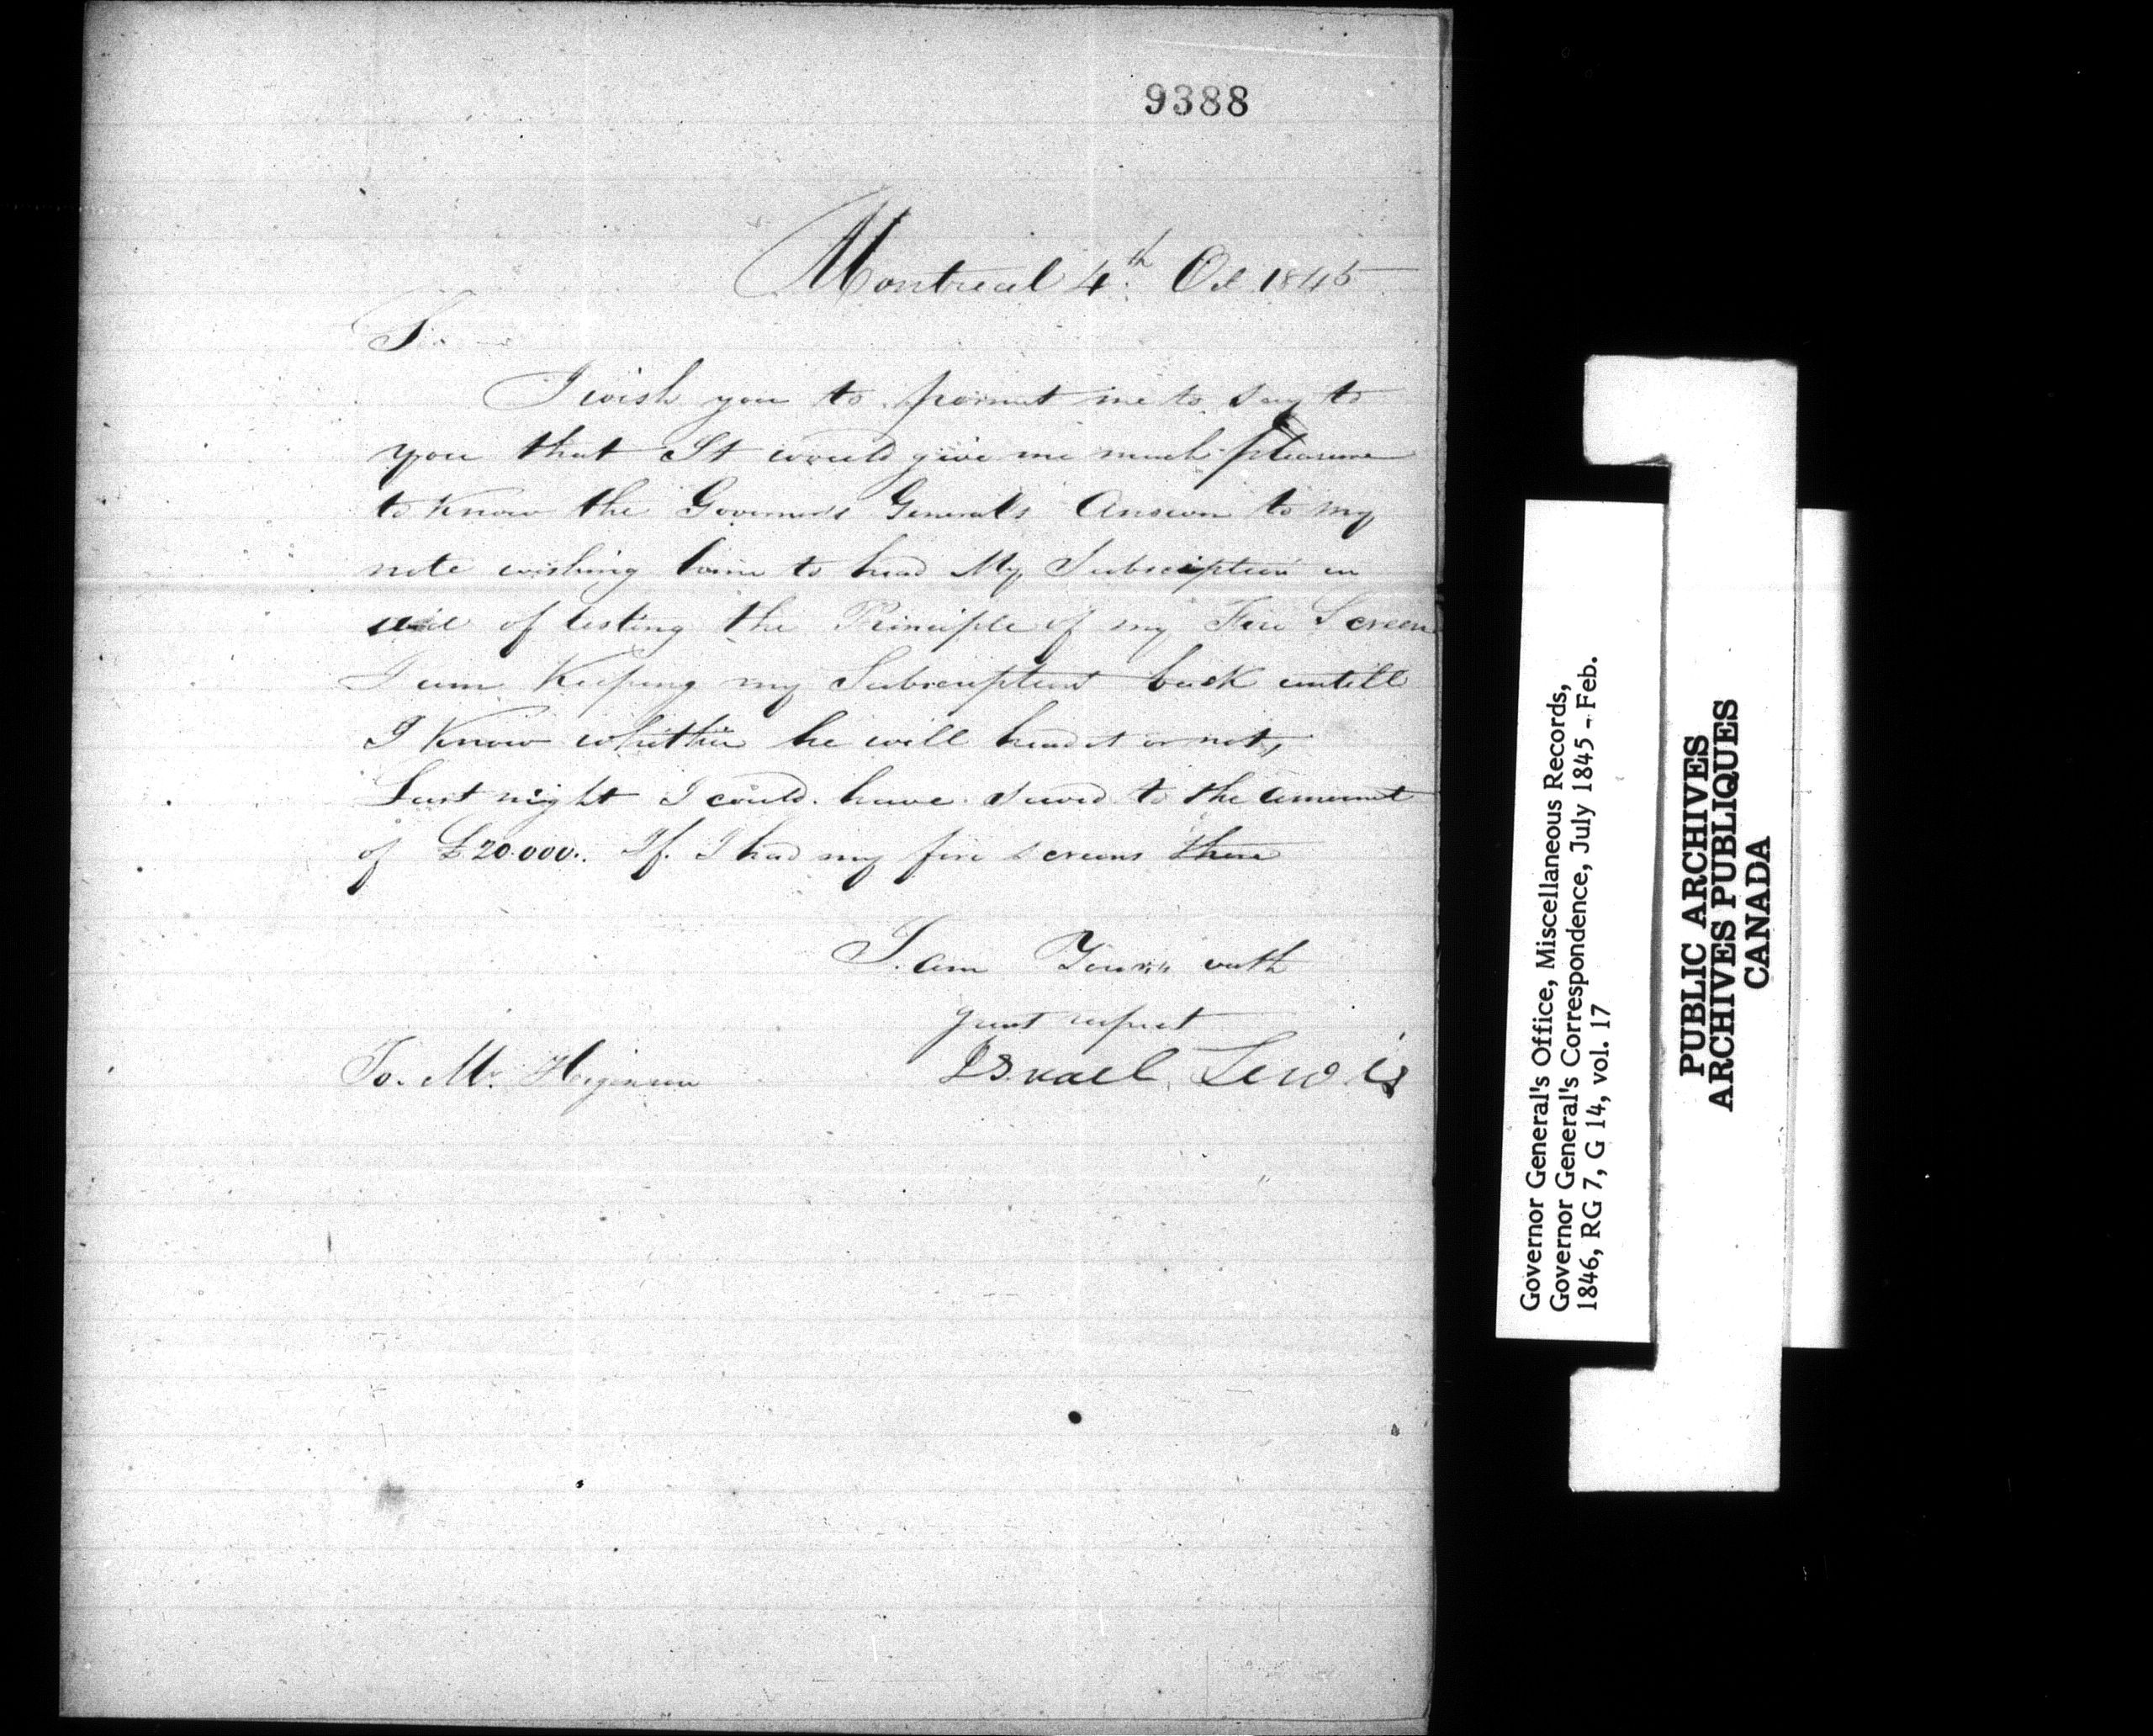 9388
Montreal 4th Oct 1845
Sir
I wish you to permit me to say to
you that It would give me much pleasure
to Know the Governor's General's Answer to my
note wishing him to head My Subscription in
aid of testing the Principle of my Fire Screen
I am Keeping my Subscription back untill
I Know whither he will head it or not,
Last night I could have saved to the amount
of £20.000.. If I had my fire screens there
I am Yours with
great respect
To. Mr. Higinson
Israel Lewis
Governor General's Office, Miscellaneous Records,
Governor General's Correspondence, July 1845 - Feb.
1846, RG 7, G 14, vol. 17
PUBLIC ARCHIVES
ARCHIVES PUBLIQUES
CANADA